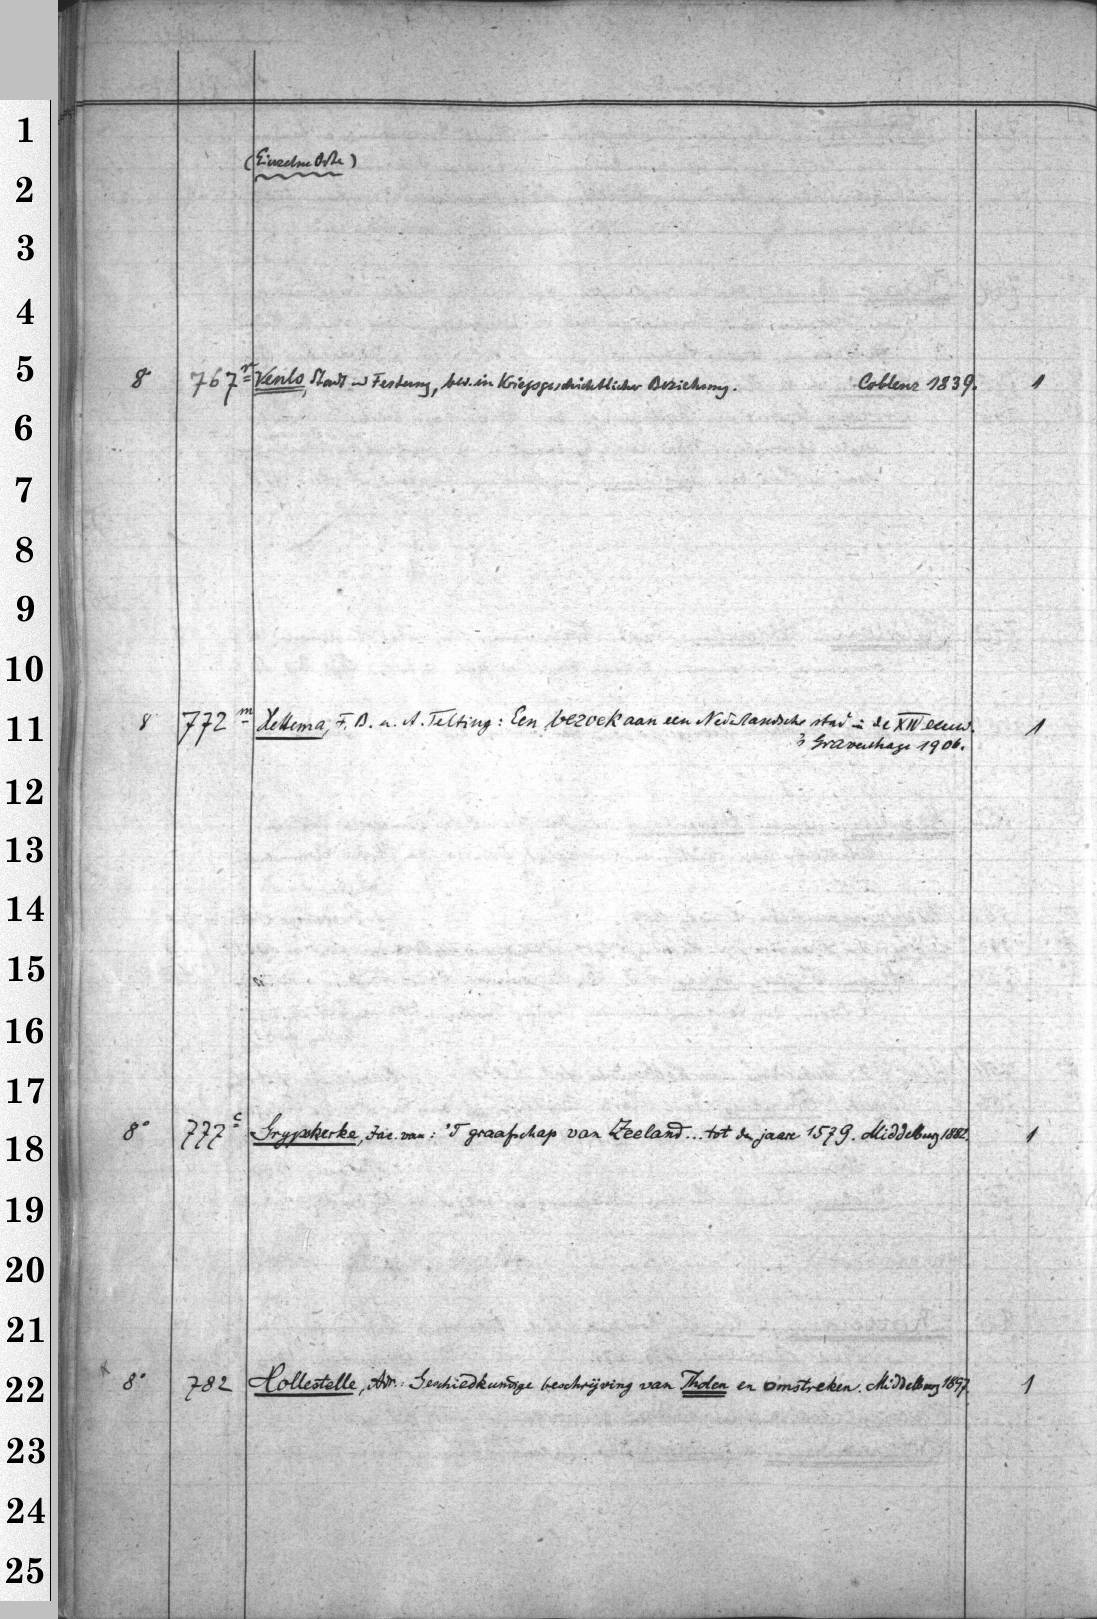 (Einzelne Orte)
8° 767n Venlo, Stadt u Festung, bes. in Kriegsgeschichtlicher Beziehung. Coblenz 1839. 1
8° 772m Hettema, F. B. u. A. Telting: Een bezoek aan een Nederlandsche stad in de XIV eeuw.
's Gravenhage 1906. 1
8° 777c Grypskerke, Jac. van: 'T graafschap van Zeeland... tot den jaare 1579. Middelburg 1882. 1
8° 782 Hollestelle, Adr.: Geschiedkundige beschrijving van Tholen en omstreken. Middelburg 1897. 1
1
2
3
4
5
6
7
8
9
10
11
12
13
14
15
16
17
18
19
20
21
22
23
24
25